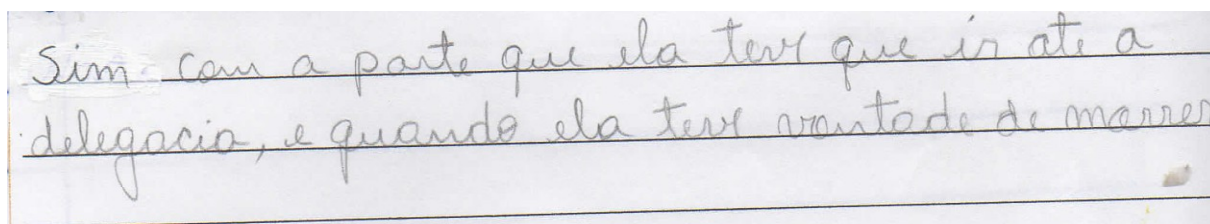 Sim com a parte que ela teve que ir ate a
delegacia, e quando ela teve vontade de morrer